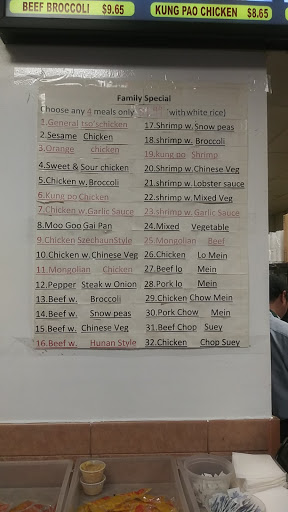 BEEF BROCCOLI $9.65 KUNG PAO CHICKEN $8.65
Family Special
Choose any 4 meals only with white rice)
1.General tso's chicken
2.Sesame Chicken
3.Orange chicken
4.Sweet & Sour chicken
5.Chicken w. Broccoli
6.Kung po Chicken
7.Chicken w. Garlic Sauce
8.Moo Goo Gai Pan
9.Chicken Szechuan Style
10.Chicken w. Chinese Veg
11.Mongolian Chicken
12.Pepper Steak w Onion
13.Beef w. Broccoli
14.Beef w. Snow peas
15.Beef w. Chinese Veg
16.Beef w. Hunan Style
17.Shrimp w. Snow peas
18.shrimp w. Broccoli
19.kung po Shrimp
20.shrimp w. Chinese Veg
21.shrimp w. Lobster sauce
22.shrimp w. Mixed Veg
23.shrimp w. Garlic Sauce
24.Mixed Vegetable
25.Mongolian Beef
26.Chicken Lo Mein
27.Beef lo Mein
28.Pork lo Mein
29.Chicken Chow Mein
30.Pork Chow Mein
31.Beef Chop Suey
32.Chicken Chop Suey